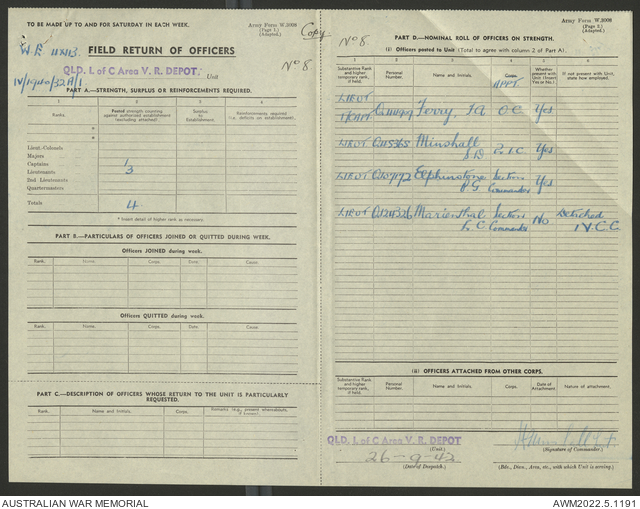 TO BE MADE UP TO AND FOR SATURDAY IN EACH WEEK.
Army Form W.2008
(Page 1.)
(Adapted.)
Copy
FIELD RETURN OF OFFICERS
No 8
QLD. L of C Area V. R. DEPOT.
Unit
PART A.—STRENGTH, SURPLUS OR REINFORCEMENTS REQUIRED.
1 2 3 4
Ranks. Posted strength counting against authorised establishment (excluding attached) Surplus to Establishment. Reinforcements required (i.e., defects on establishment).
Lieut.-Colonels
Majors
Captains 1
Lieutenants 3
2nd Lieutenants
Quartermasters
Totals 4
* Insert detail of higher rank as necessary.
PART B.—PARTICULARS OF OFFICERS JOINED OR QUITTED DURING WEEK.
Officers JOINED during week.
Rank. Name. Corps. Date. Cause.
Officers QUITTED during week.
Rank. Name. Corps. Date. Cause.
PART C.—DESCRIPTION OF OFFICERS WHOSE RETURN TO THE UNIT IS PARTICULARLY REQUESTED.
Rank. Name and Initials. Corps. Remarks (e.g., present whereabouts, if known).
Army Form W.2008
(Page 2.)
(Adapted.)
No 8
PART D.—NOMINAL ROLL OF OFFICERS ON STRENGTH.
(i) Officers posted to Unit (Total to agree with column 2 of Part A).
1 2 3 4 5 6
Substantive Rank and higher temporary rank, if held. Personal Number. Name and Initials. Corps. Whether present with Unit (Insert Yes or No.) If not present with Unit, state how employed.
APPT.
LIEUT
Terry, O.C. Yes
LIEUT Minshall 2 I.C. Yes
LIEUT Elphinstone Section Commander Yes
LIEUT Marienthal Section Commander No Detached
(ii) OFFICERS ATTACHED FROM OTHER CORPS.
Substantive Rank and higher temporary rank, if held. Personal Number. Name and Initials. Corps. Date of Attachment. Nature of attachment.
QLD. L of C Area V. R. DEPOT
(Unit)
(Signature of Commander.)
26-9-42
(Date of Despatch.)
(Bde., Divn., Area, etc., with which Unit is serving.)
AUSTRALIAN WAR MEMORIAL
AWM2022.5.1191